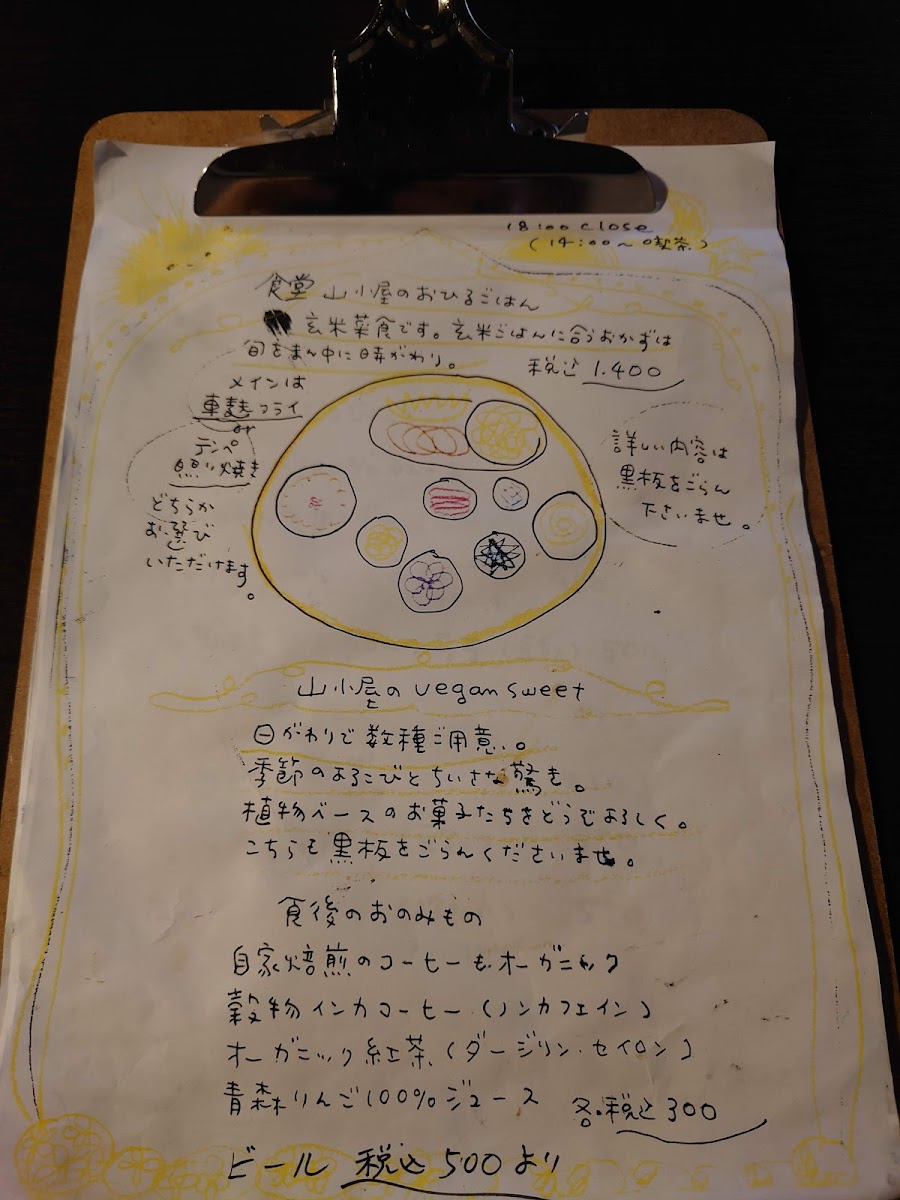 18:00 close
(14:00～喫茶)
食堂 山小屋のおひるごはん
玄米菜食です。玄米ごはんに合うおかずは
旬をまん中に日替がわり。
税込 1.400
メインは
車麩フライ
or
テンペ
照り焼き
どちらか
お選び
いただけます。
詳しい内容は
黒板をごらん
下さいませ。
山小屋の vegan sweet
日がわりで数種ご用意。
季節のよろこびとちいさな驚き。
植物ベースのお菓子たちをどうぞよろしく。
こちらも黒板をごらんくださいませ。
食後のおのみもの
自家焙煎のコーヒーもオーガニック
穀物インカコーヒー(ノンカフェイン)
オーガニック紅茶(ダージリン・セイロン)
青森りんご100%ジュース
各・税込 300
ビール 税込 500より